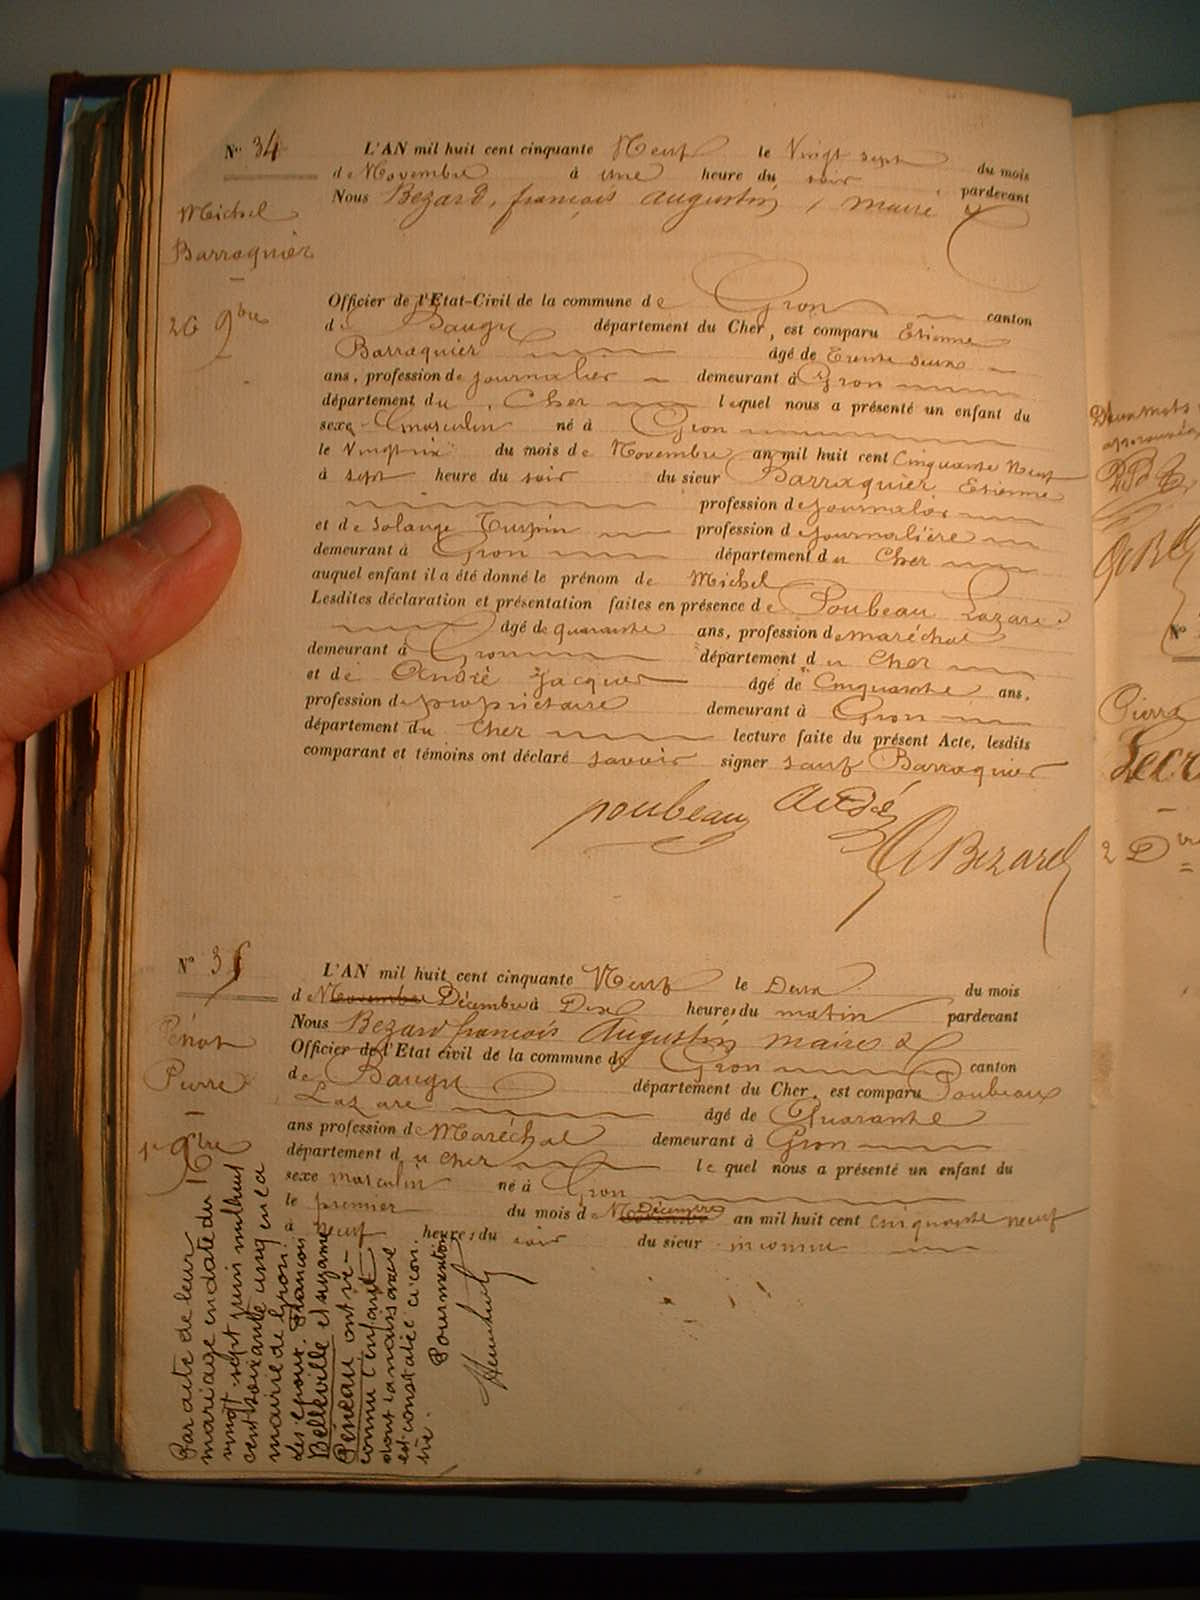 N° 34
Michel
Barraquier
26 9bre
L'AN mil huit cent cinquante Neuf le Vingt sept du mois
de Novembre à une heure du soir, pardevant
Nous Bezard, françois augustin, maire
Officier de l'Etat-Civil de la commune de Gron canton
de Baugy département du Cher, est comparu Etienne
Barraquier âgé de Trente deux
ans, profession de journalier demeurant à Gron
département du Cher lequel nous a présenté un enfant du
sexe masculin né à Gron
le Vingt six du mois de Novembre an mil huit cent Cinquante Neuf
à sept heure du soir du sieur Barraquier Etienne
profession de journalier
et de Solange Turpin profession de journalière
demeurant à Gron département du Cher
auquel enfant il a été donné le prénom de Michel
Lesdites déclaration et présentation faites en présence de Poubeau Lazare
âgé de quarante ans, profession de maréchal
demeurant à Gron département du Cher
et de André Jacques âgé de Cinquante ans,
profession de propriétaire demeurant à Gron
département du Cher lecture faite du présent Acte, lesdits
comparant et témoins ont déclaré savoir signer sauf Barraquier
poubeau André
Bezard
N° 35
Pierre
L'AN mil huit cent cinquante Neuf le Deux du mois
de Novembre Décembre à Dix heures du matin pardevant
Nous Bezard françois Augustin maire
Officier de l'Etat civil de la commune de Gron canton
de Baugy département du Cher, est comparu Poubeau
Lazare âgé de Quarante
ans profession de Maréchal demeurant à Gron
département du Cher lequel nous a présenté un enfant du
sexe masculin né à Gron
le premier du mois de Novembre Décembre an mil huit cent cinquante neuf
à Neuf heures du soir du sieur inconnu
Par acte de leur
mariage en date du
vingt-sept juin mil huit
cent soixante un en la
mairie de Gron.
Les époux François
Belleville et Suzanne
Péneau ont re-
connu l'enfant
dont la naissance
est constatée ci con-
tre.
Pour mention
Deux mots
approuvés
Pierre